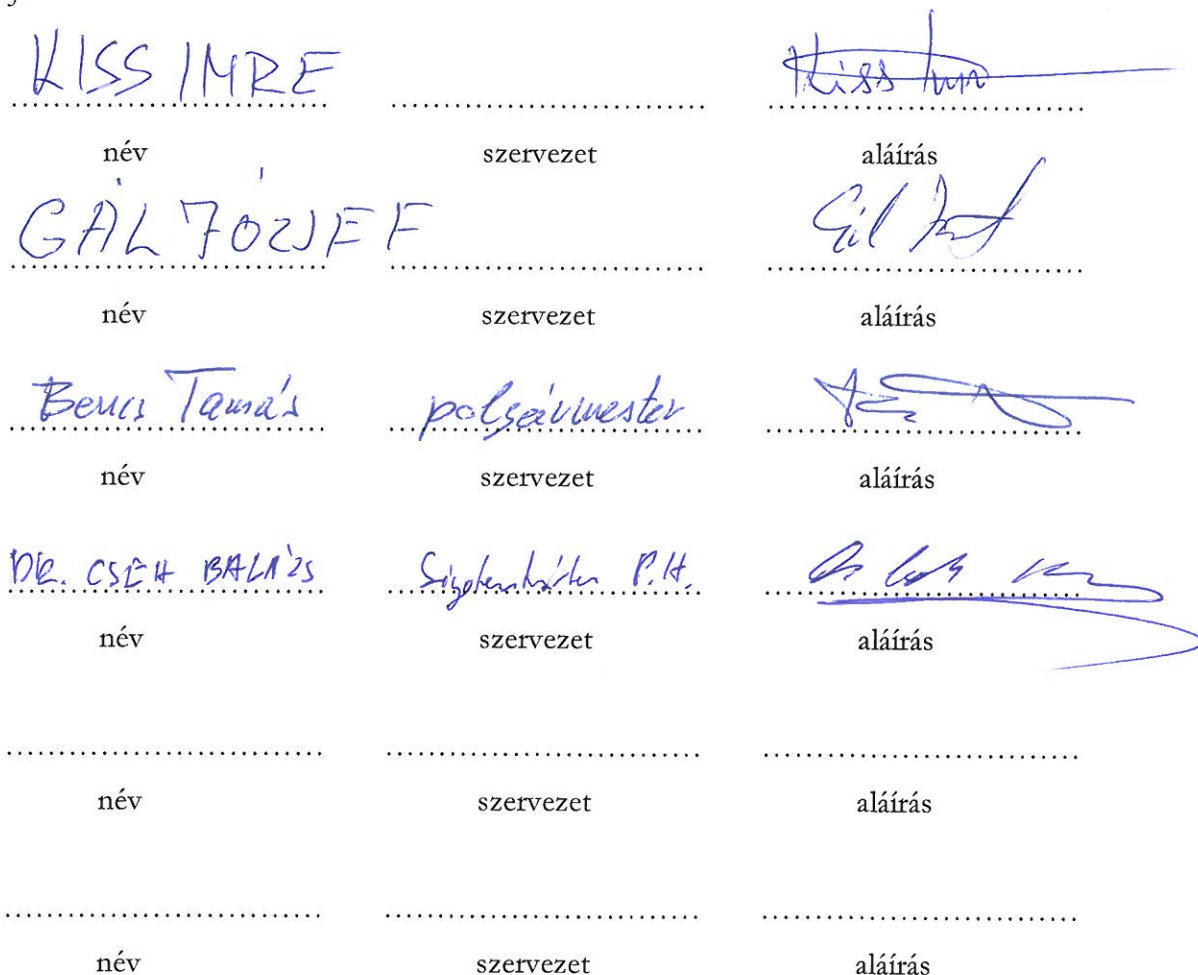 KISS IMRE Kiss Imre
név szervezet aláírás
GÁL JÓZSEF Gál József
név szervezet aláírás
Bencs Tamás polgármester
név szervezet aláírás
DR. CSEH BALÁZS P.H.
név szervezet aláírás
név szervezet aláírás
név szervezet aláírás